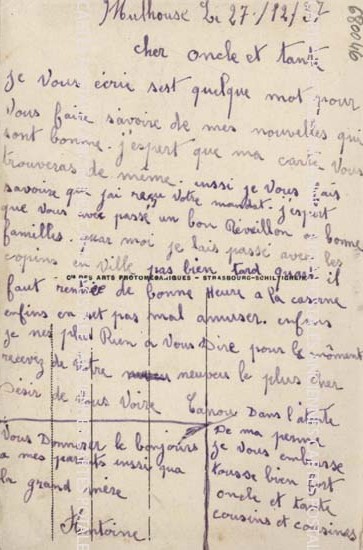 Mulhouse le 27/12/37
680046
cher oncle et tante
je vous écrie sest quelque mot pour
vous faire savoire de mes nouvelles qui
sont bonne. j'espert que ma carte vous
trouveras de même. ausi je vous fais
savoire que j'ai reçu votre mandat. j'espert
que vous avec passe un bon Reveillon a bonne
familles. quar moi je lais passé avec les
copins en ville pas bien tard quart il
Cie DES ARTS PHOTOMÉCANIQUES - STRASBOURG-SCHILTIGHEIM
faut rentrée de bonne Heure a la caserne
enfins en set pas mal amuser. enfins
je nes plus Rien à vous Dire pour le môment
recevez de votre neuveus le plus cher
Désir de vous Voire
Dans l'atente
De ma perme
je vous embrasse
tousse bien fort
oncle et tante
cousins et cousines
Vous Donnuser le bonjours
a mes parents aussi qua
la grand mère
Antoine